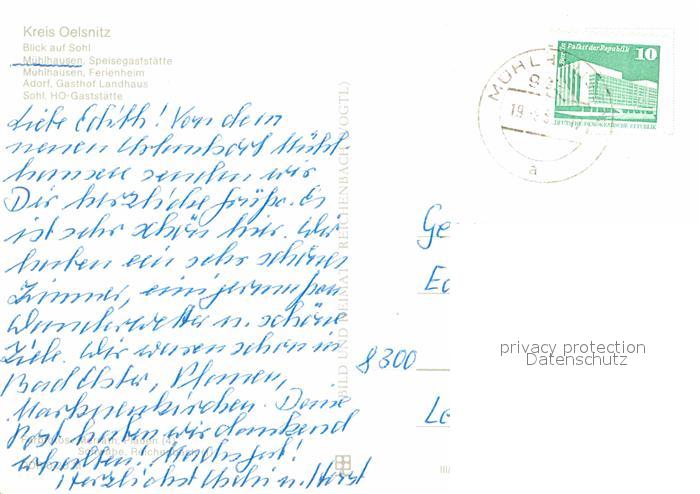 Kreis Oelsnitz
Blick auf Sohl
Mühlhausen, Speisegaststätte
Mühlhausen, Ferienheim
Adorf, Gasthof Landhaus
Sohl, HO-Gaststätte
Liebe Edith! Von dem
neuen Urlaubsort Mühl
hausen senden wir
Dir herzliche Grüße. Es
ist sehr schön hier. Wir
haben ein sehr schönes
Zimmer, einigermaßen
Wanderwetter u. schöne
Ziele. Wir waren schon in
Bad Elster, Plauen,
Markneukirchen. Deine
Post haben wir dankend
erhalten. Machs gut!
Herzlichst Uschi u. Horst
BILD UND HEIMAT REICHENBACH (VOGTL)
MÜHLH
19
a
Palast der Republik 10
DEUTSCHE DEMOKRATISCHE REPUBLIK
Ge
Ed
8300
Le
privacy protection
Datenschutz
III/